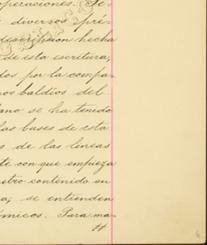 operaciones. Se
diversos
descripcion hecha
de esta escritura,
dos por la compa-
nos baldíos del
ano se ha tenido
las bases de esta
s de las lineas
te con que empieza
etro contenido en
se entienden
ómicos. Para ma-